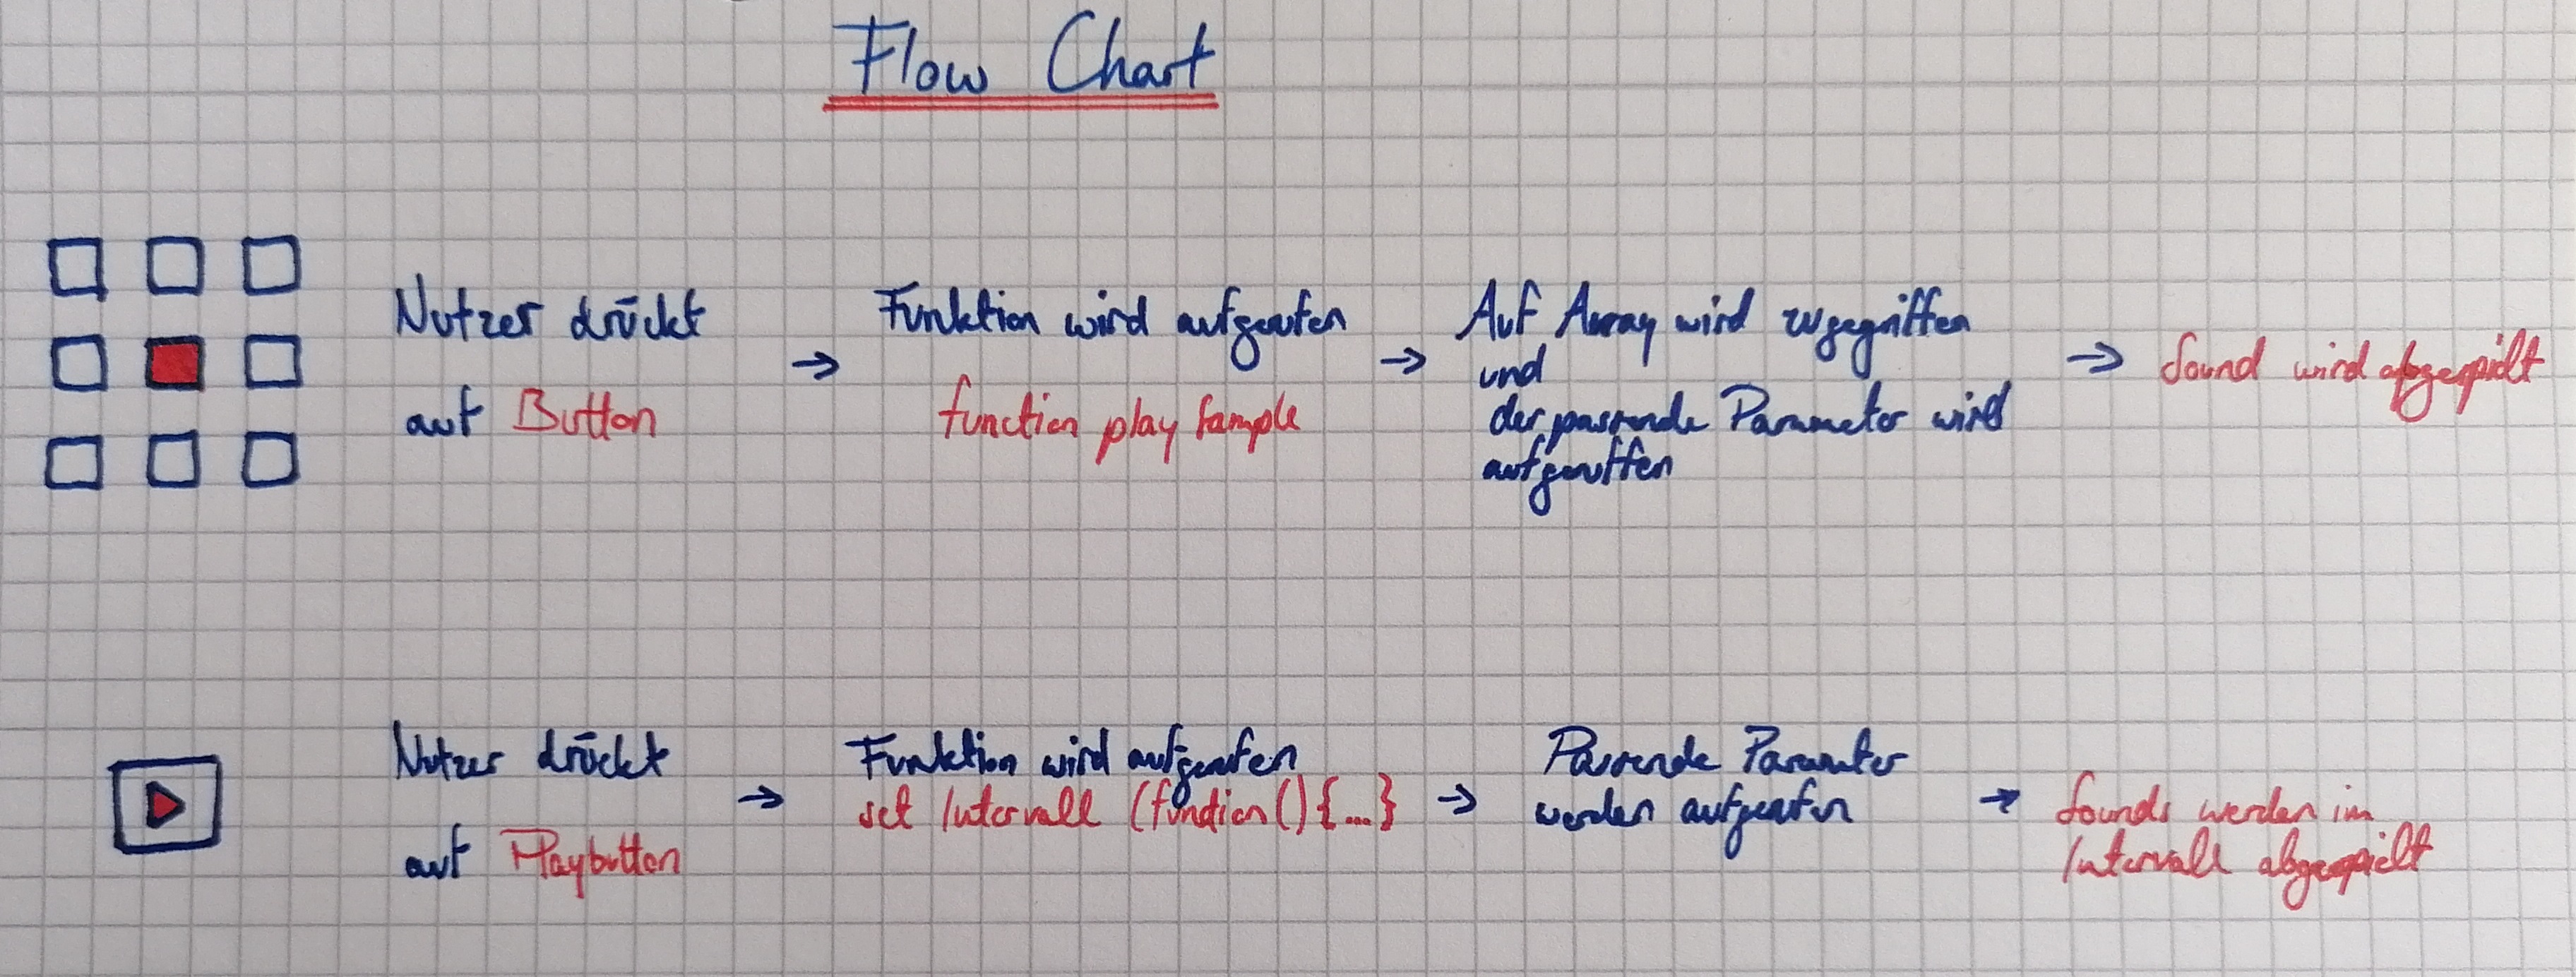 Flow Chart
Nutzer drückt
auf Button
→
Funktion wird aufgerufen
function play Sample
→
Auf Array wird zugegriffen
und
der passende Parameter wird
aufgeruffen
→
Sound wird abgespielt
Nutzer drückt
auf Playbutton
→
Funktion wird aufgerufen
set Intervall (function(){...}
→
Passende Parameter
werden aufgerufen
→
Sounds werden im
Intervall abgespielt